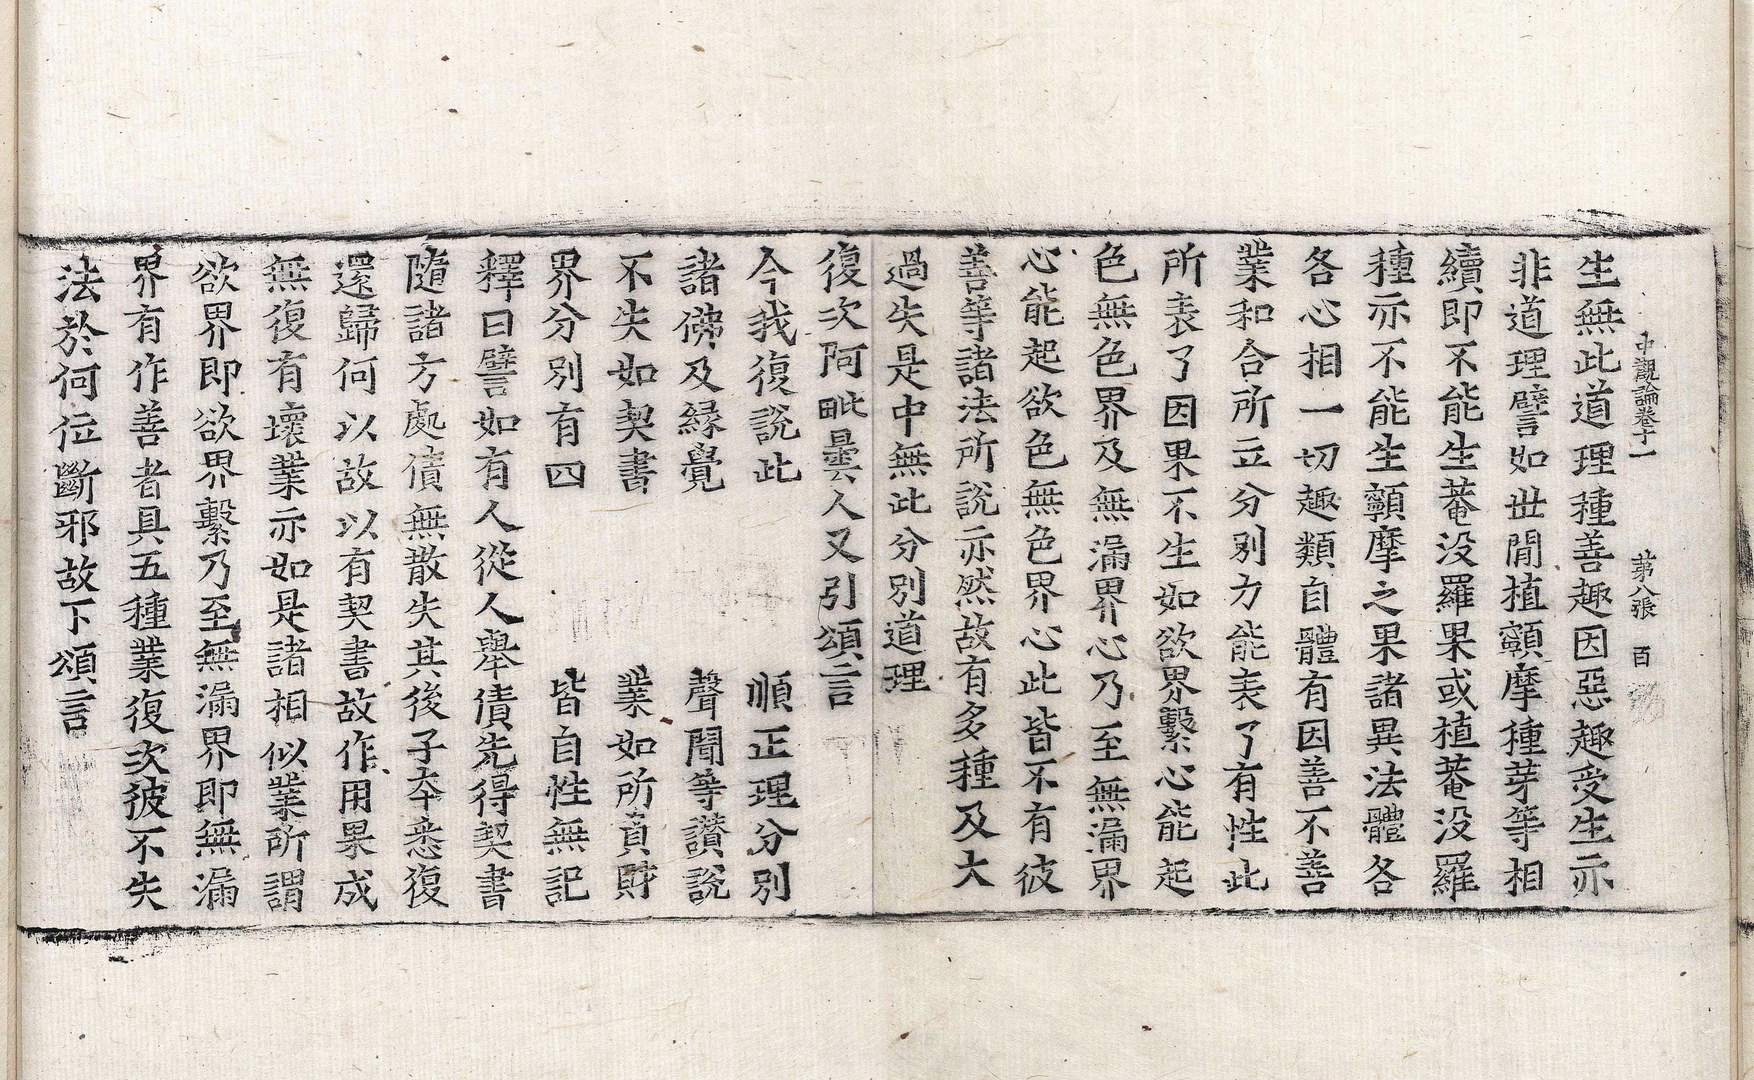 中觀論卷十一 第八張 百
生無此道理種善趣因惡趣受生亦
非道理譬如世閒植顭摩種芽等相
續即不能生菴没羅果或植菴没羅
種亦不能生顭摩之果諸異法體各
各心相一切趣類自體有因善不善
業和合所立分別力能表了有性此
所表了因果不生如欲界繫心能起
色無色界及無漏界心乃至無漏界
心能起欲色無色界心此皆不有彼
善等諸法所說亦然故有多種及大
過失是中無此分別道理
復次阿毗曇人又引頌言
今我復說此 順正理分別
諸佛及緣覺 聲聞等讚說
不失如契書 業如所負財
界分別有四 皆自性無記
釋曰譬如有人從人舉債先得契書
隨諸方處債無散失其後子本悉復
還歸何以故以有契書故作用果成
無復有壞業亦如是諸相似業所謂
欲界即欲界繫乃至無漏界即無漏
界有作善者具五種業復次彼不失
法於何位斷邪故下頌言